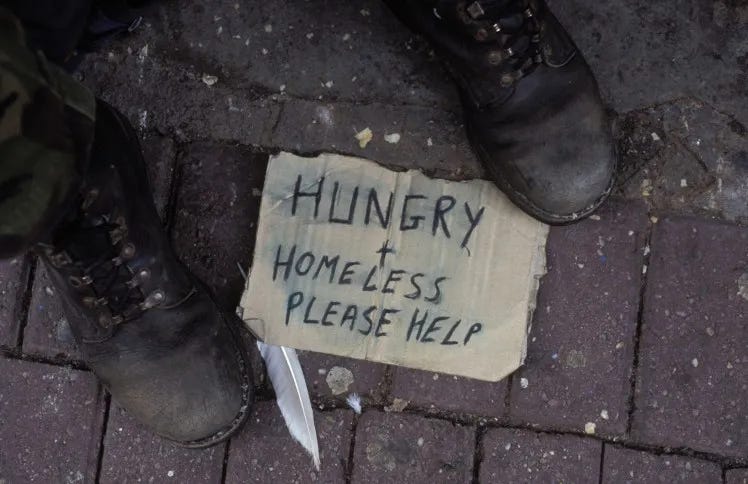 HUNGRY
+
HOMELESS
PLEASE HELP